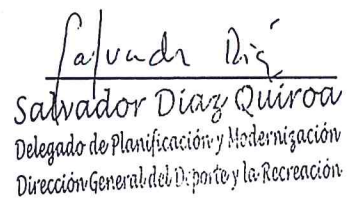 Salvador Díaz Quiroa
Delegado de Planificación y Modernización
Dirección General del Deporte y la Recreación